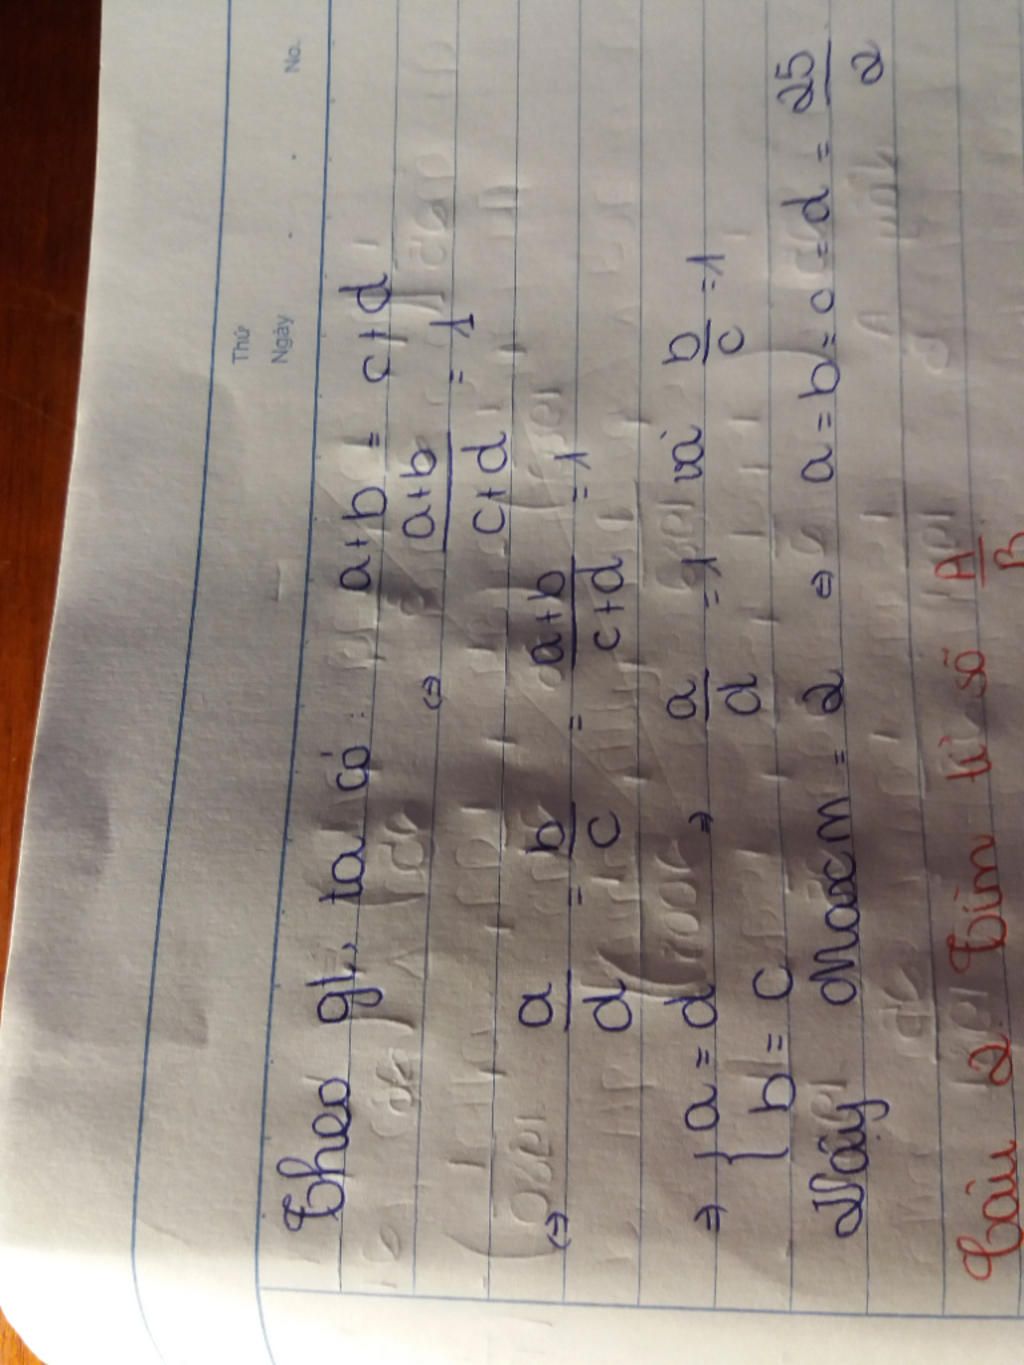 No.
Thứ
Ngày
Theo gt, ta có: a+b = c+d
⇔ a+b / c+d = 1
⇔ a/d = b/c = a+b / c+d = 1
⇒ { a = d ⇒ a/d = 1 và b/c = 1
b = c
Vậy Maxm = 2 ⇔ a = b = c = d = 25/2
Câu 2: Tìm tỉ số A/B